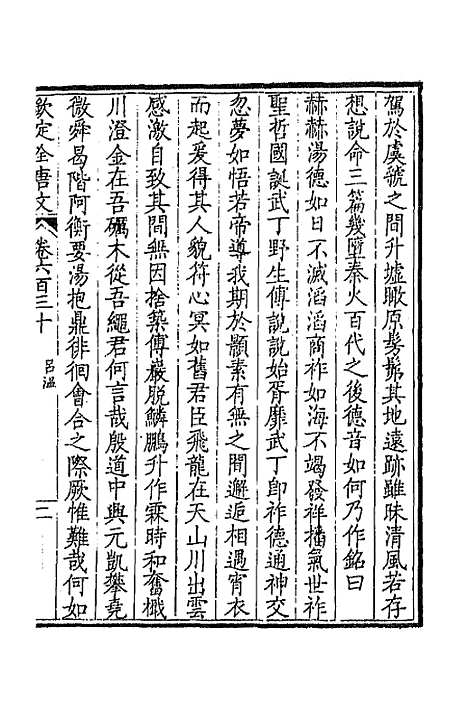 駕於虞虢之間升墟瞰原髣髴其地遠跡雖昧清風若存
想說命三篇幾墮秦火百代之後德音如何乃作銘曰
赫赫湯德如日不滅滔滔商祚如海不竭發祥播氣世祚
聖哲國誕武丁野生傅說說始胥靡武丁卽祚德通神交
忽夢如悟若帝導我期於顥素有無之間邂逅相遇宵衣
而起爰得其人貌符心冥如舊君臣飛龍在天山川出雲
感激自致其間無因捨築傅巖脫鱗鵬升作霖時和奮檝
川澄金在吾礪木從吾繩君何言哉殷道中興元凱攀堯
微舜曷階阿衡要湯抱鼎徘徊會合之際厥惟難哉何如
欽定全唐文 卷六百三十 呂溫 二